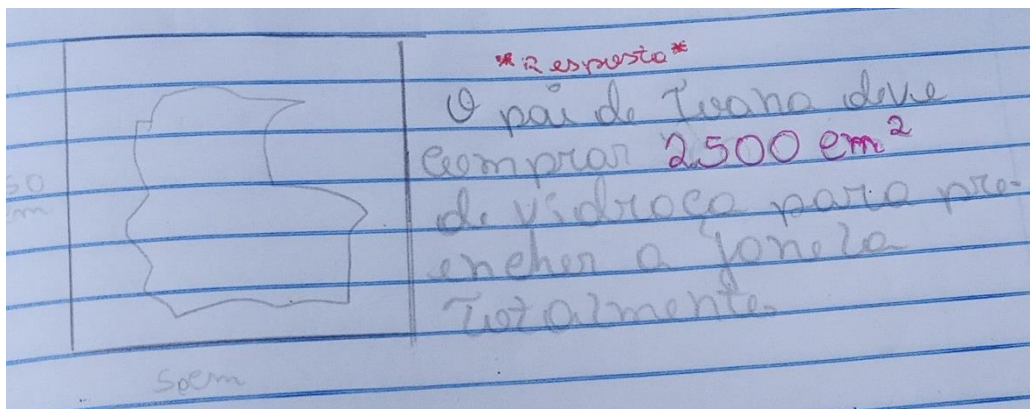 *Resposta*
O pai de Ivana deve
comprar 2.500 cm²
de vidraça para pre-
encher a janela
Totalmente.
50
cm
50cm